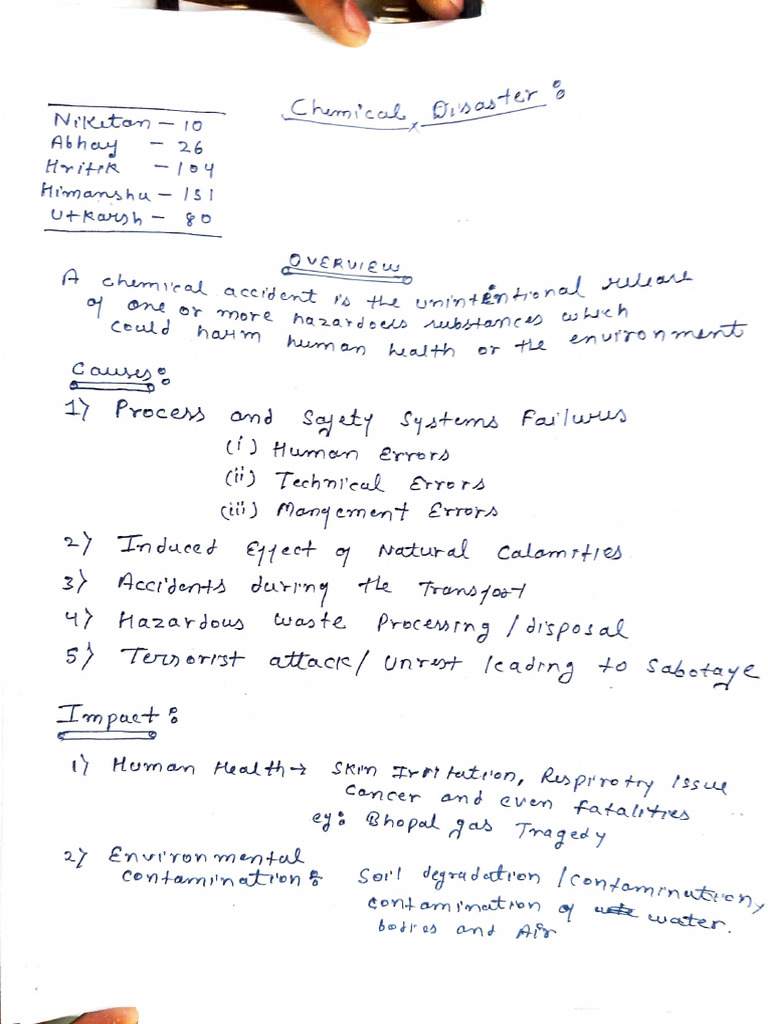 Chemical Disaster :
Niketan - 10
Abhay - 26
Hritik - 104
Himanshu - 151
Utkarsh - 80
OVERVIEW
A chemical accident is the unintentional release
of one or more hazardoes substances which
could harm human health or the environment
Causes :
1) Process and Safety Systems Failures
(i) Human Errors
(ii) Technical Errors
(iii) Mangement Errors
2) Induced Effect of Natural Calamities
3) Accidents during the Transport
4) Hazardous waste Processing / disposal
5) Terrorist attack / Unrest leading to Sabotage
Impact :
1) Human Health → Skin Irritation, Respirotry Issue
Cancer and even fatalities
eg: Bhopal gas Tragedy
2) Environmental
contamination : Soil degradation / Contamination,
contamination of water.
bodies and Air